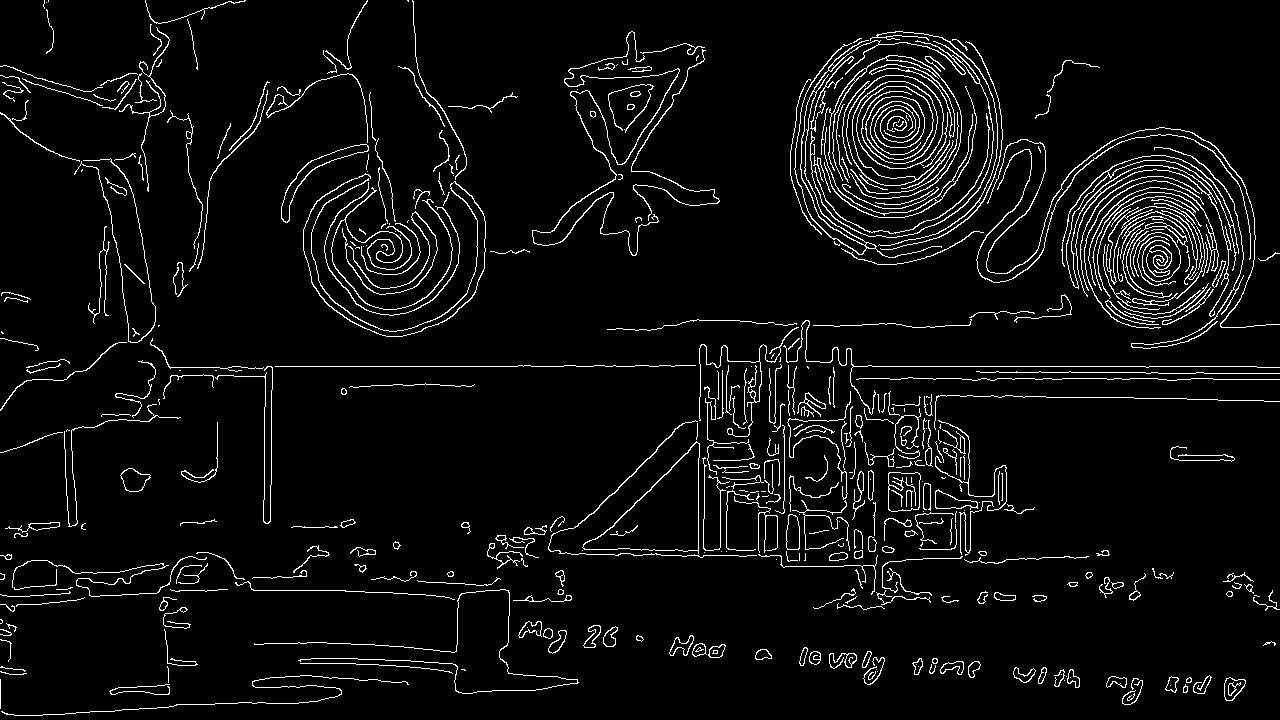 May 26 · Had a lovely time with my kid ♡